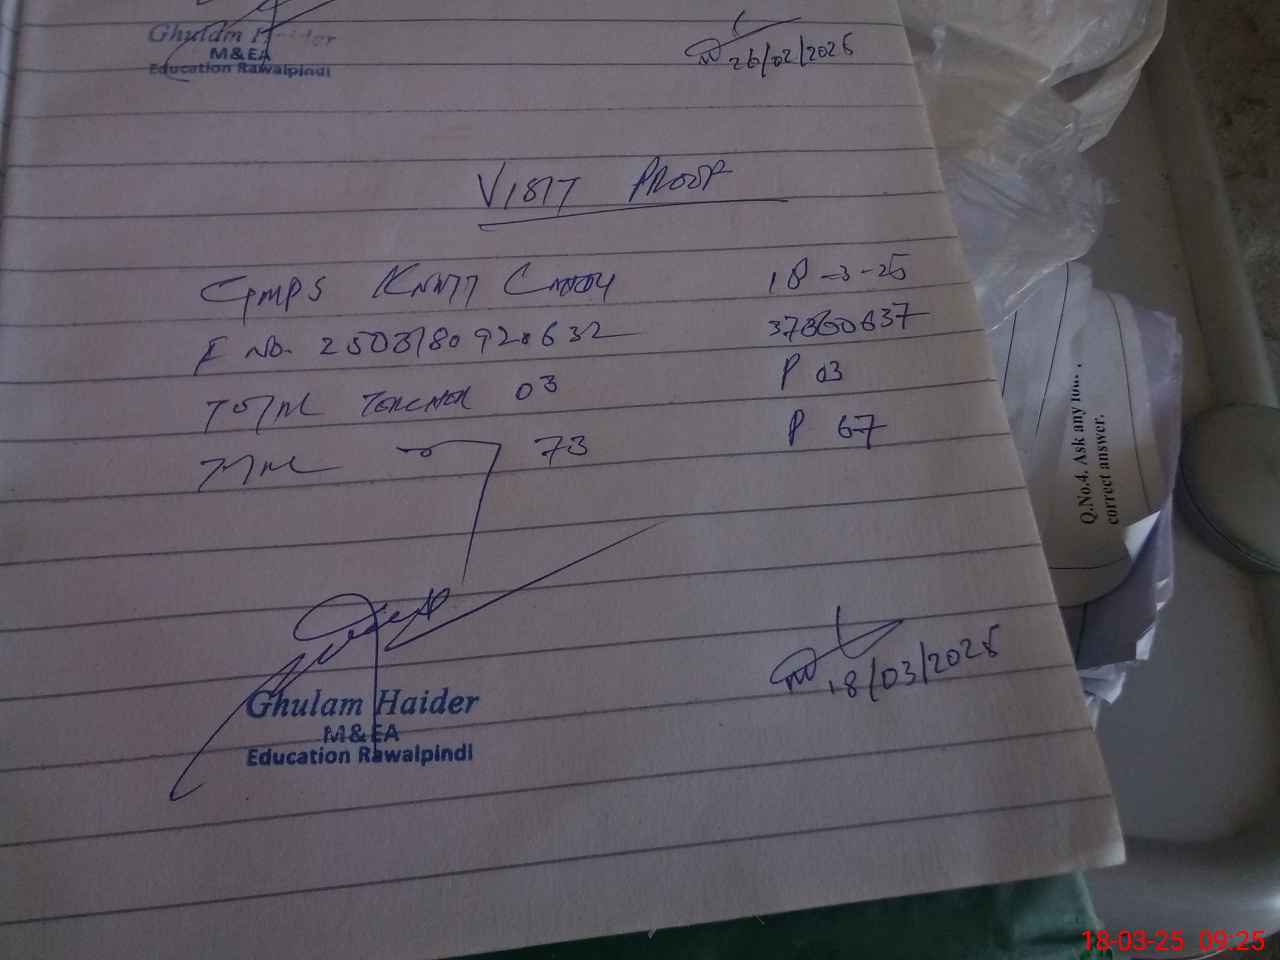 Ghulam Haider
M&EA
Education Rawalpindi
26/02/2025
VISIT PROOF
GMPS 18-3-25
E No. 250318092632 37360637
TOTAL TEACHER 03 P 03
TOTAL 73 P 67
18/03/2025
Ghulam Haider
M&EA
Education Rawalpindi
Q.No.4. Ask any
correct answer.
18-03-25 09:25